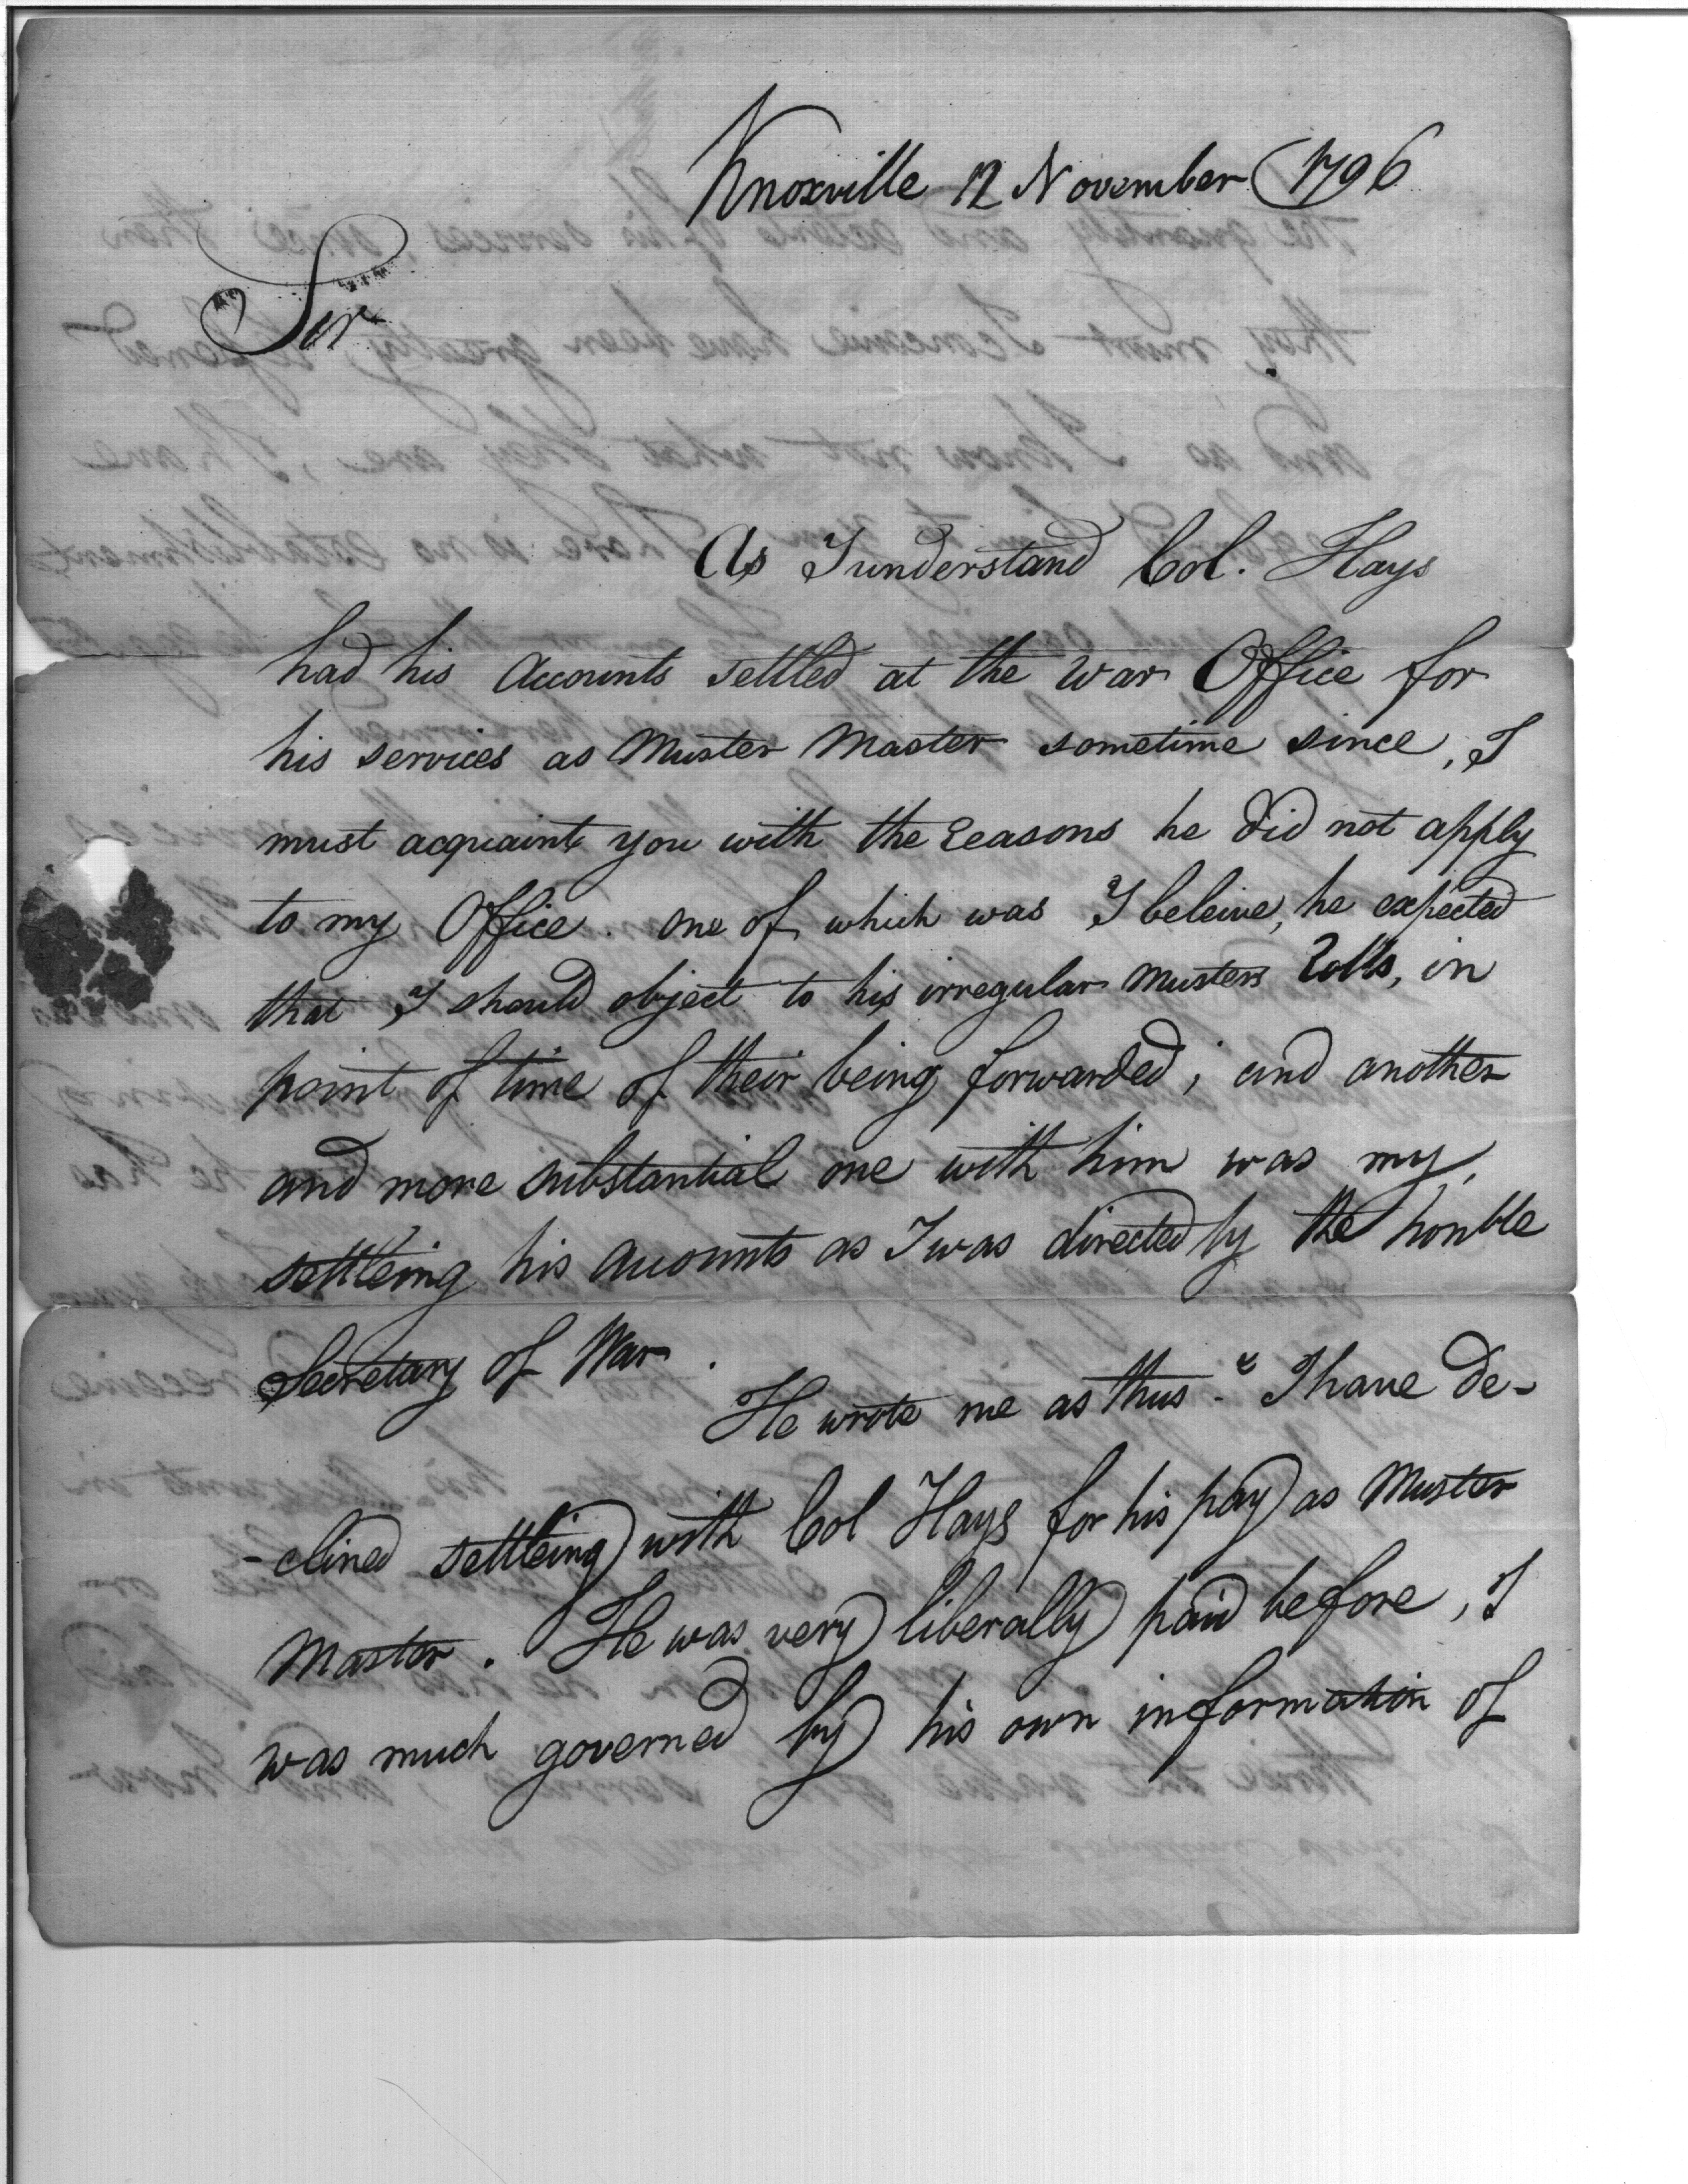 Knoxville 12 November 1796
Sir
As I understand Col. Hays
had his Accounts settled at the War Office for
his services as Muster Master sometime since, I
must acquaint you with the Reasons he did not apply
to my Office. One of which was I beleive, he expected
that I should object to his irregular Musters Rolls, in
point of time of their being forwarded; and another
and more substantial one with him was my
settleing his Accounts as I was directed by the honble
Secretary of War.
He wrote me as thus - "I have de-
-clined settleing with Col Hays for his pay as Muster
Master. He was very liberally paid before, I
was much governed by his own information of